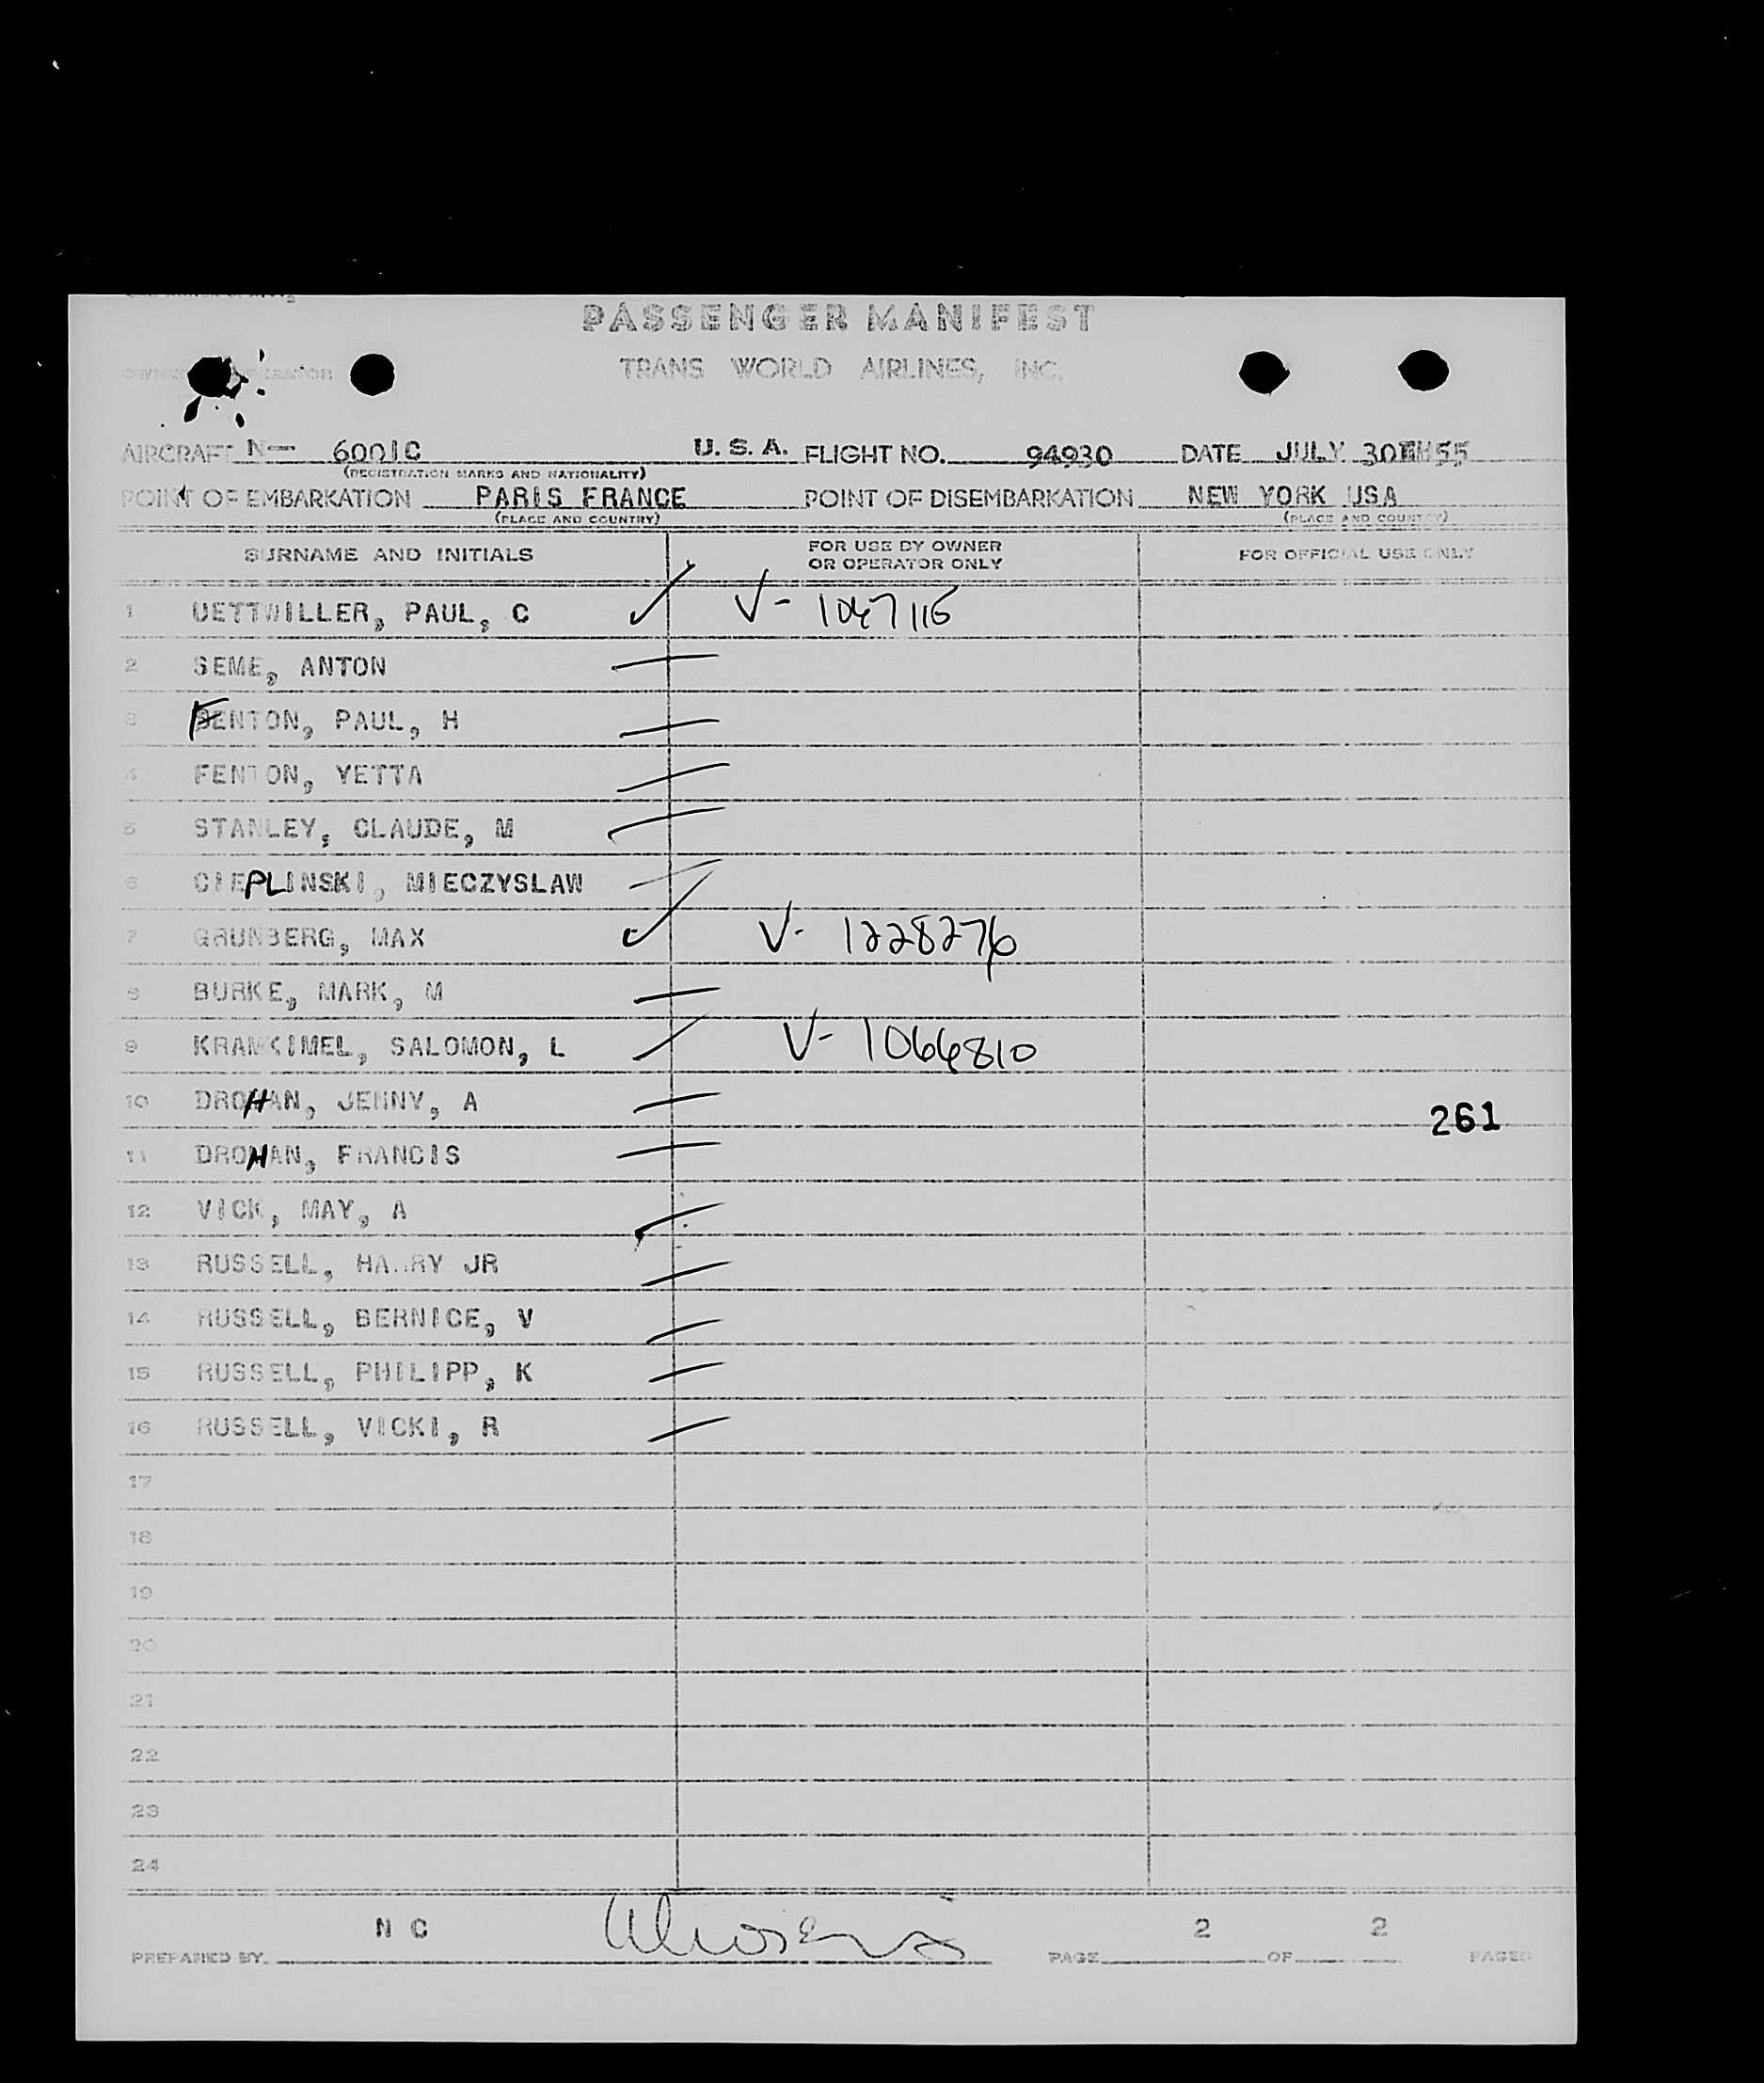 PASSENGER MANIFEST
TRANS WORLD AIRLINES, INC.
AIRCRAFT N— 6001C U. S. A. FLIGHT NO. 94930 DATE JULY 30TH 55
(REGISTRATION MARKS AND NATIONALITY)
POINT OF EMBARKATION PARIS FRANCE POINT OF DISEMBARKATION NEW YORK USA
(PLACE AND COUNTRY) (PLACE AND COUNTRY)
SURNAME AND INITIALS FOR USE BY OWNER OR OPERATOR ONLY FOR OFFICIAL USE ONLY
1 UETTWILLER, PAUL, C V- 1047115
2 SEME, ANTON
3 FENTON, PAUL, H
4 FENTON, YETTA
5 STANLEY, CLAUDE, M
6 CIEPLINSKI, MIECZYSLAW
7 GRUNBERG, MAX V- 1228276
8 BURKE, MARK, M
9 KRAMKIMEL, SALOMON, L V- 1066810
10 DROHAN, JENNY, A
261
11 DROHAN, FRANCIS
12 VICK, MAY, A
13 RUSSELL, HARRY JR
14 RUSSELL, BERNICE, V
15 RUSSELL, PHILIPP, K
16 RUSSELL, VICKI, R
17
18
19
20
21
22
23
24
PREPARED BY N C PAGE 2 OF 2 PAGES